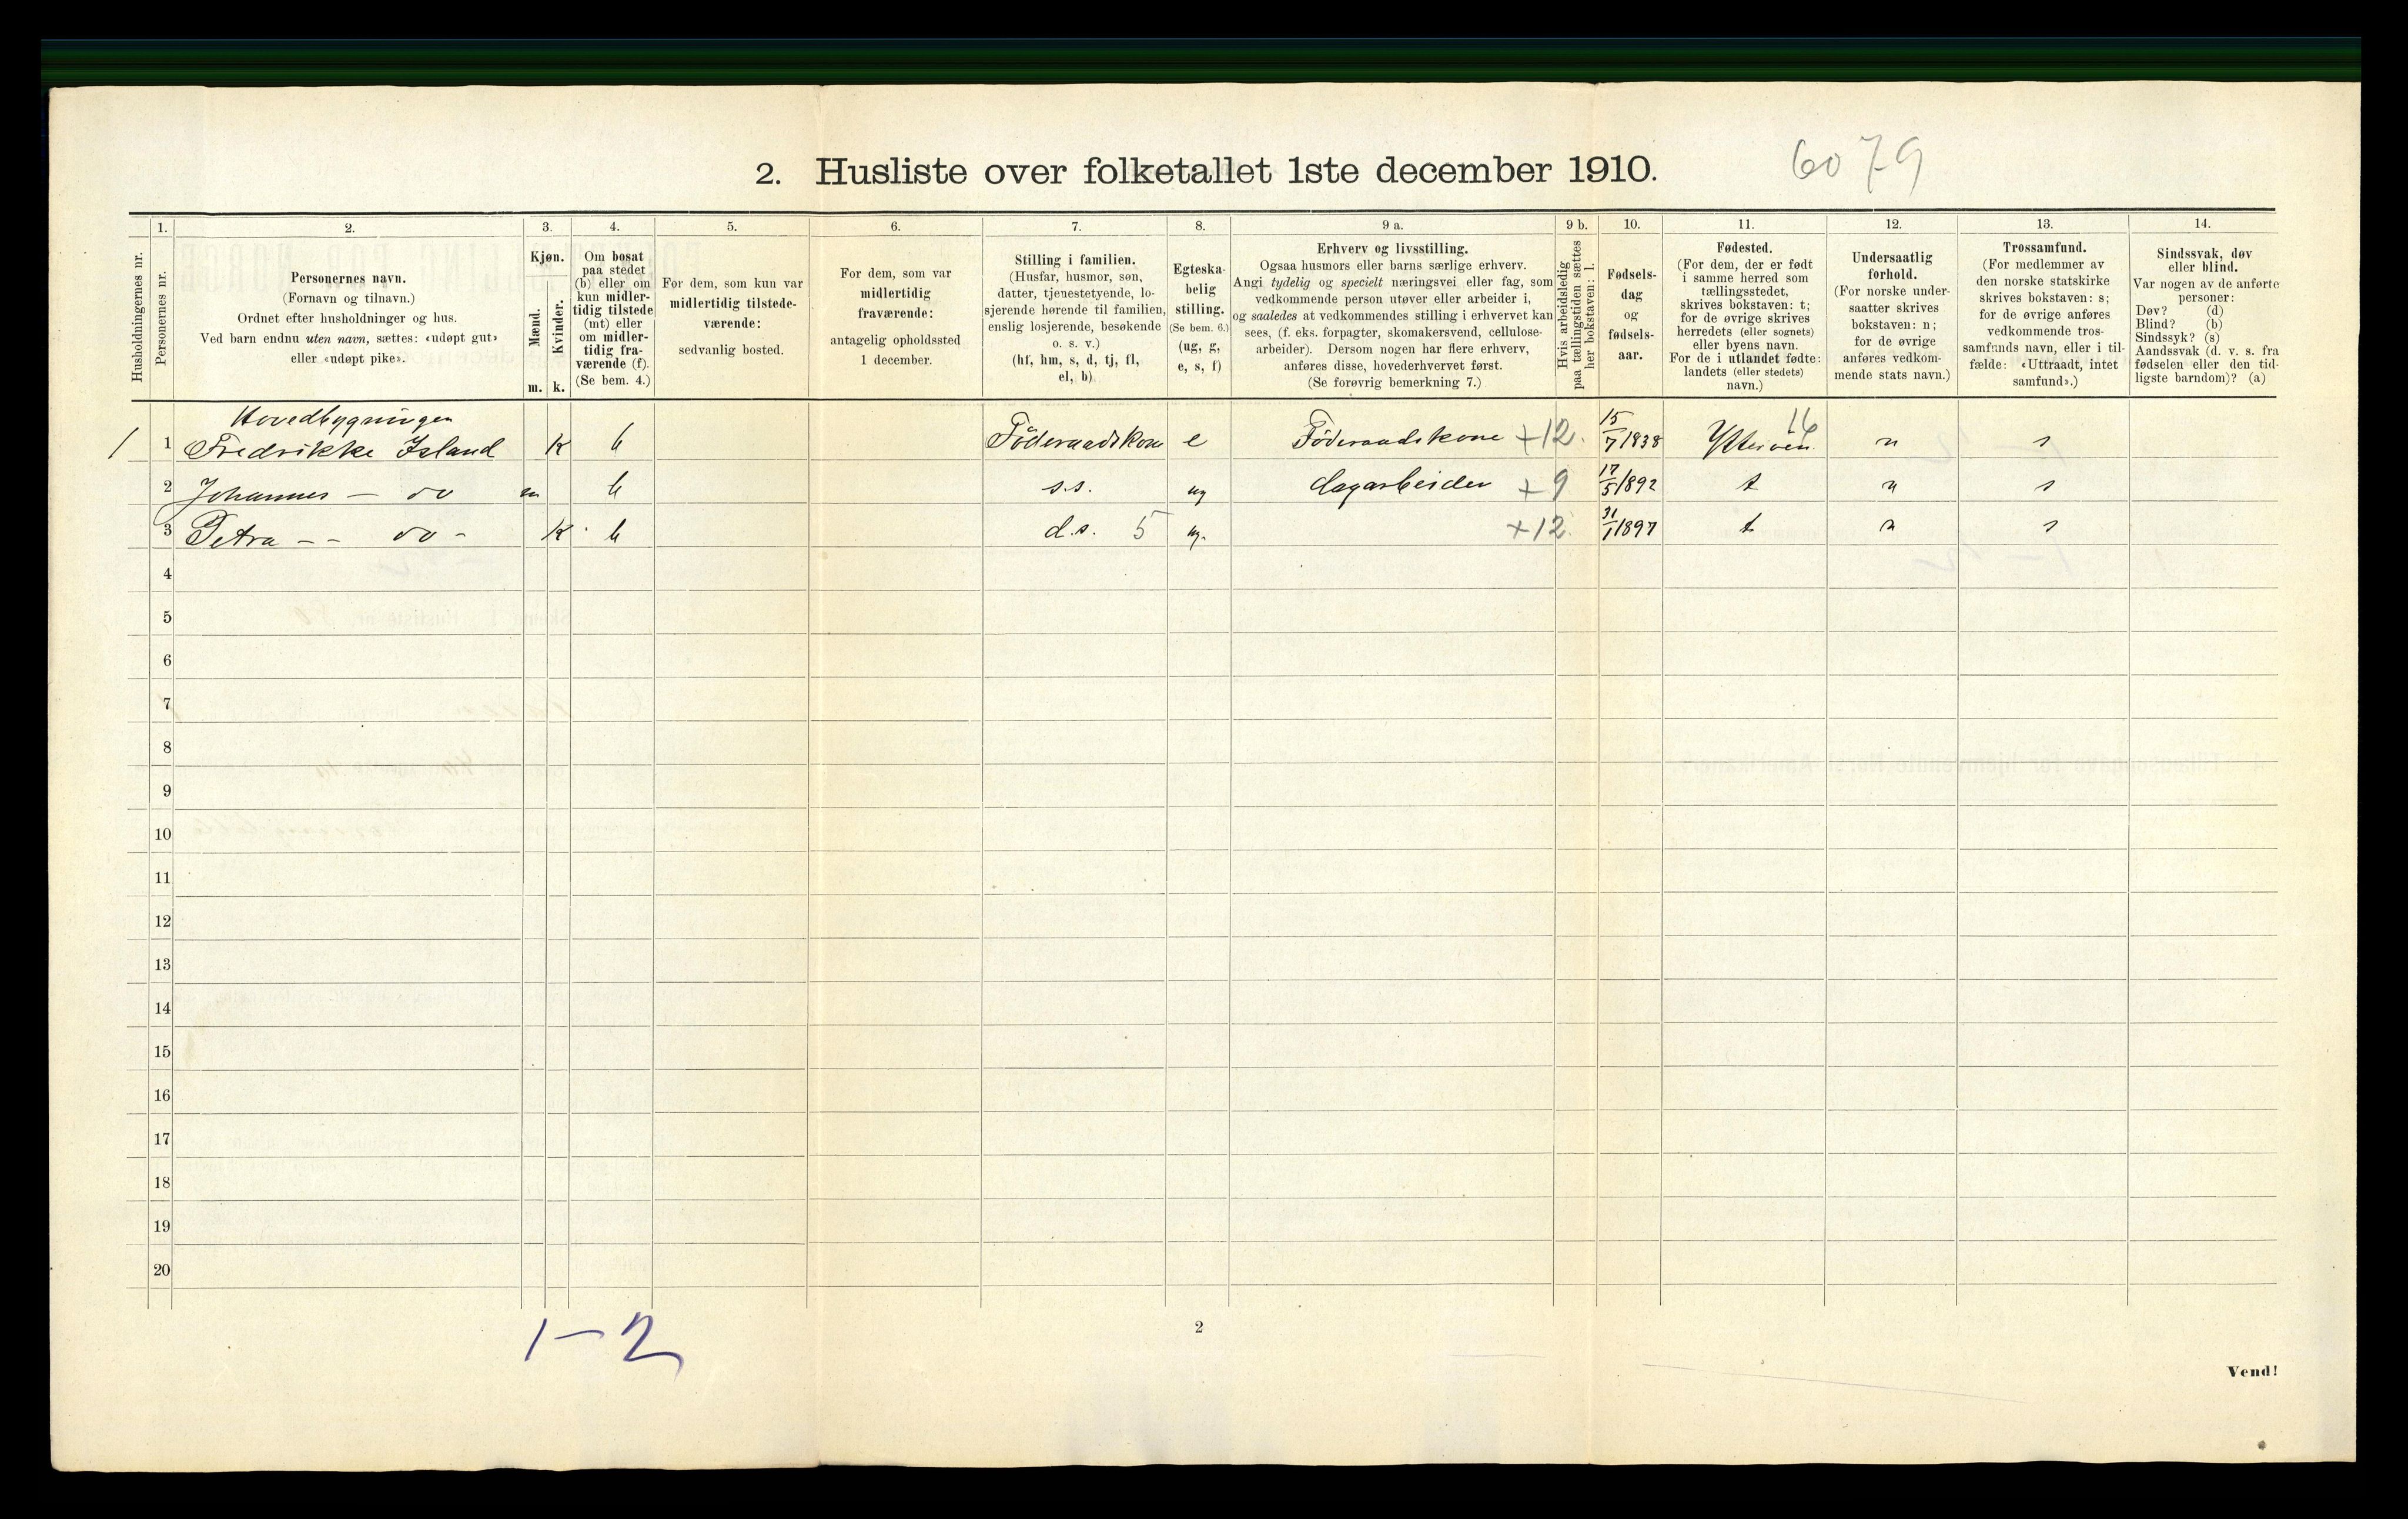 6079
2. Husliste over folketallet 1ste december 1910.
Husholdningernes nr.
1.
Personernes nr.
2.
Personernes navn.
(Fornavn og tilnavn.)
Ordnet efter husholdninger og hus.
Ved barn endnu uten navn, sættes: «udøpt gut»
eller «udøpt pike».
3.
Kjøn.
Mænd.
Kvinder.
m. k.
4.
Om bosat
paa stedet
(b) eller om
kun midler-
tidig tilstede
(mt) eller
om midler-
tidig fra-
værende (f).
(Se bem. 4.)
5.
For dem, som kun var
midlertidig tilstede-
værende:
sedvanlig bosted.
6.
For dem, som var
midlertidig
fraværende:
antagelig opholdssted
1 december.
7.
Stilling i familien.
(Husfar, husmor, søn,
datter, tjenestetyende, lo-
sjerende hørende til familien,
enslig losjerende, besøkende
o. s. v.)
(hf, hm, s, d, tj, fl,
el, b)
8.
Egteska-
belig
stilling.
(Se bem. 6.)
(ug, g,
e, s, f)
9 a.
Erhverv og livsstilling.
Ogsaa husmors eller barns særlige erhverv.
Angi tydelig og specielt næringsvei eller fag, som
vedkommende person utøver eller arbeider i,
og saaledes at vedkommendes stilling i erhvervet kan
sees, (f. eks. forpagter, skomakersvend, cellulose-
arbeider). Dersom nogen har flere erhverv,
anføres disse, hovederhvervet først.
(Se forøvrig bemerkning 7.)
9 b.
Hvis arbeidsledig
paa tællingstiden sættes
her bokstaven: l.
10.
Fødsels-
dag
og
fødsels-
aar.
11.
Fødested.
(For dem, der er født
i samme herred som
tællingsstedet,
skrives bokstaven: t;
for de øvrige skrives
herredets (eller sognets)
eller byens navn.
For de i utlandet fødte:
landets (eller stedets)
navn.)
12.
Undersaatlig
forhold.
(For norske under-
saatter skrives
bokstaven: n;
for de øvrige
anføres vedkom-
mende stats navn.)
13.
Trossamfund.
(For medlemmer av
den norske statskirke
skrives bokstaven: s;
for de øvrige anføres
vedkommende tros-
samfunds navn, eller i til-
fælde: «Uttraadt, intet
samfund».)
14.
Sindssvak, døv
eller blind.
Var nogen av de anførte
personer:
Døv? (d)
Blind? (b)
Sindssyk? (s)
Aandssvak (d. v. s. fra
fødselen eller den tid-
ligste barndom)? (a)
Hovedbygningen
1 1 Fredrikke Island K b Föderaadskone e Föderaadskone +12. 15/7 1838 16 Ytterøen n s
2 Johannes — do m b s.s. ug dagarbeider +9 17/5 1892 t n s
3 Petra -- do - K b d.s. 5 ug. +12. 31/1 1897 t n s
4
5
6
7
8
9
10
11
12
13
14
15
16
17
18
19
20
1-2
2
Vend!